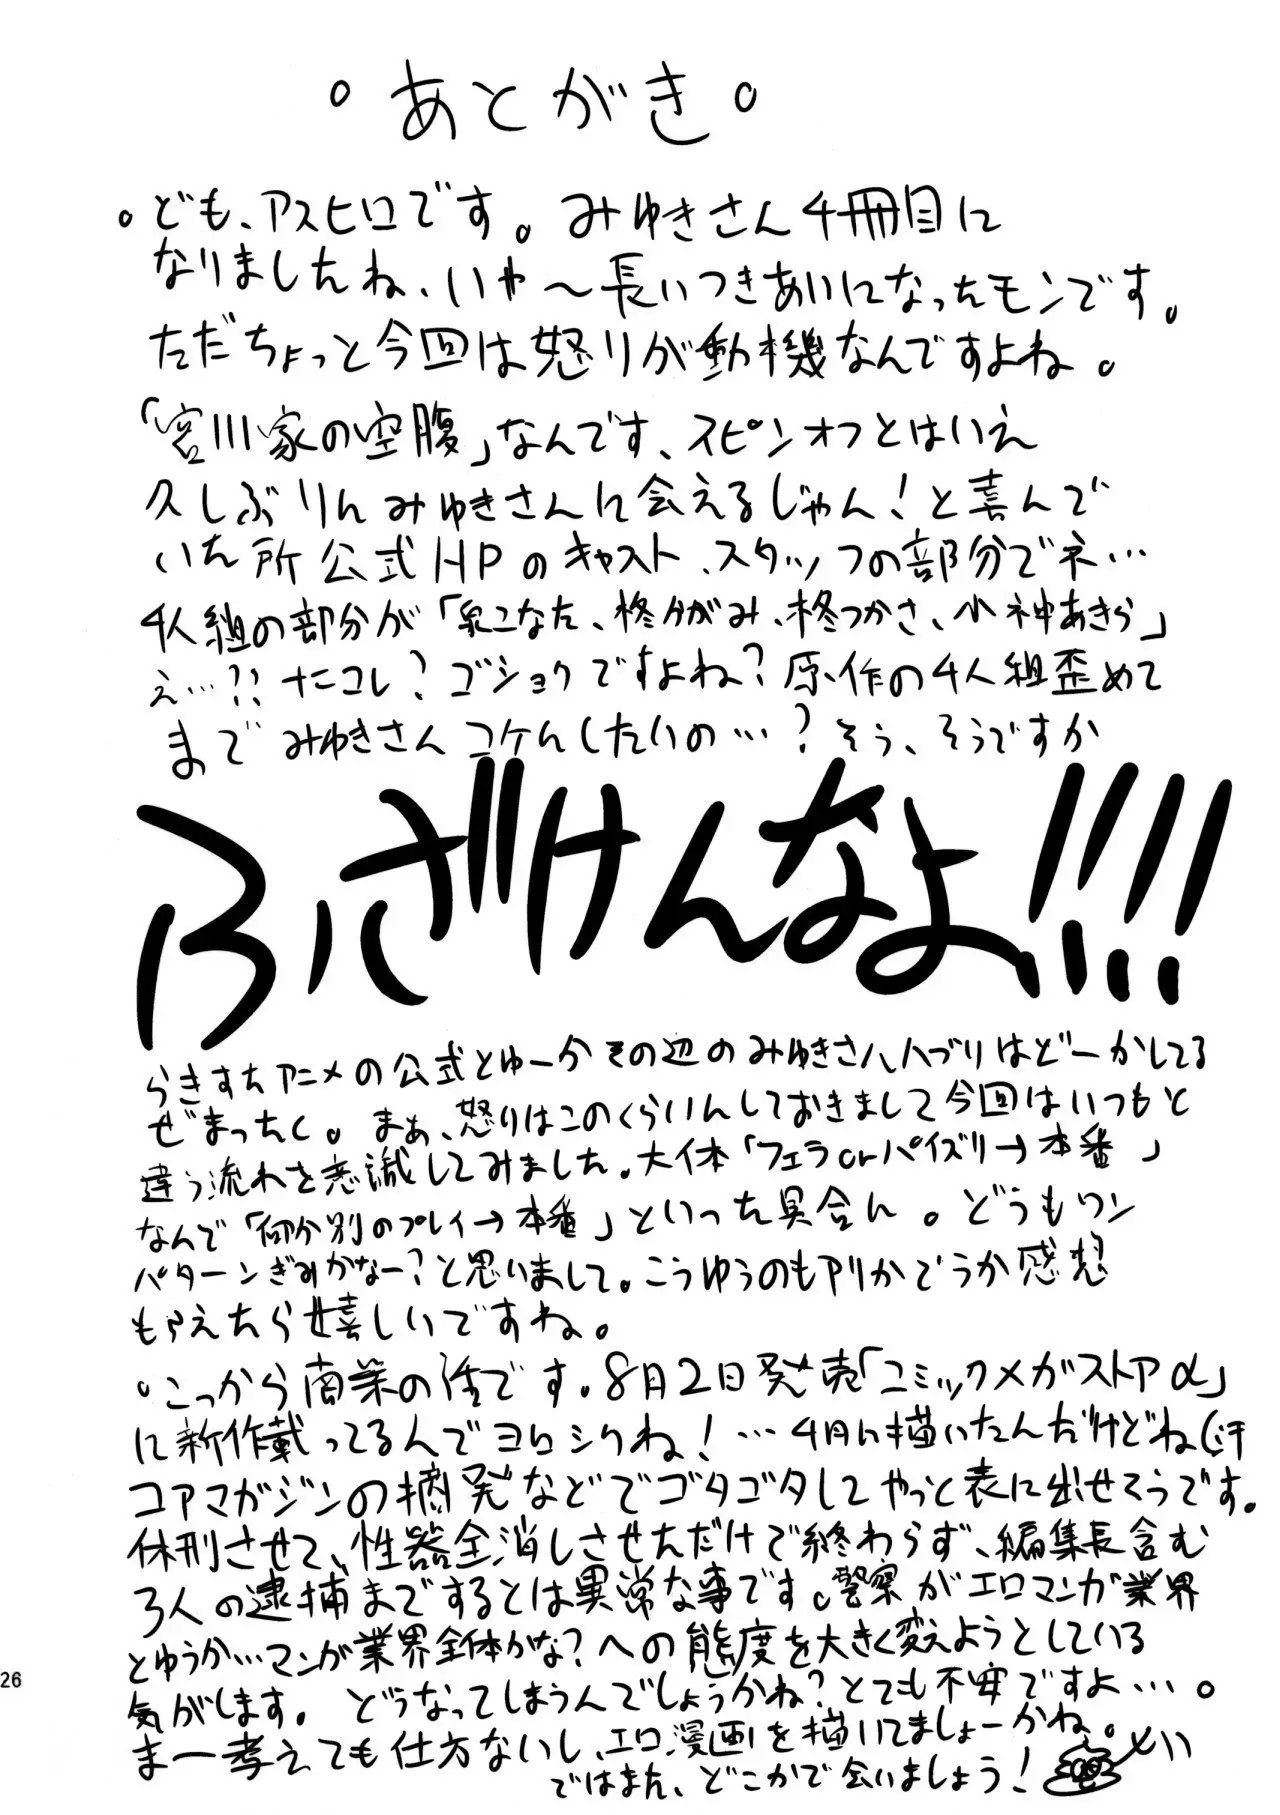 。あとがき。
。ども、アスヒロです。みゆきさん4冊目に
なりましたね、いや〜長いつきあいになったモンです。
ただちょっと今回は怒りが動機なんですよね。
「宮川家の空腹」なんです、スピンオフとはいえ
久しぶりにみゆきさんに会えるじゃん!と喜んで
いた所公式HPのキャスト、スタッフの部分でネ…
4人組の部分が「泉こなた、柊かがみ、柊つかさ、小神あきら」
え…?? ナニコレ?ゴショクですよね?原作の4人組歪めて
までみゆきさんコケにしたいの…?そう、そうですか
ふざけんなよ!!!!
らきすたアニメの公式とゆーかその辺のみゆきさんハブリはどーかしてる
ぜまったく。まぁ、怒りはこのくらいにしておきまして今回はいつもと
違う流れを意識してみました。大体「フェラorパイズリ→本番」
なんで「何か別のプレイ→本番」といった具合に。どうもワン
パターンぎみかなー?と思いまして。こうゆうのもアリかどうか感想
もらえたら嬉しいですね。
。こっから商業の話です。8月2日発売「コミックメガストアα」
に新作載ってるんでヨロシクね!…4月に描いたんだけどね(汗
コアマガジンの摘発などでゴタゴタしてやっと表に出せそうです。
休刊させて、性器全消しさせただけで終わらず、編集長含む
3人の逮捕までするとは異常な事です。警察がエロマンガ業界
とゆうか…マンガ業界全体かな?への態度を大きく変えようとしている
気がします。どうなってしまうんでしょうかね?とても不安ですよ…。
ま一考えても仕方ないし、エロ漫画を描いてましょーかね。
ではまた、どこかで会いましょう!
26